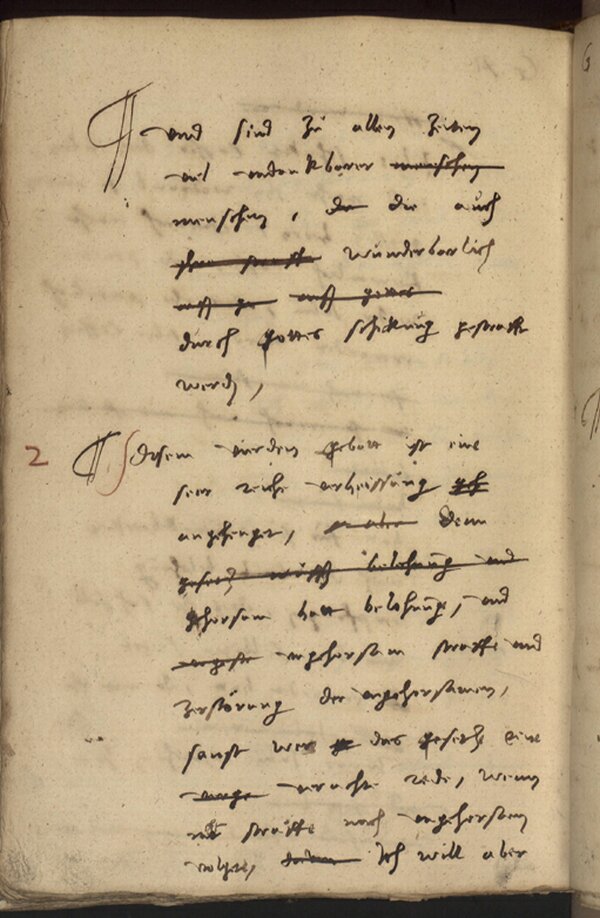 und sind zu allen zeiten
vil undankbarer menschen
menschen, die auch
wunderbarlich
durch gottes schikung gestrafft
werden,
2 disem vierden gebott ist eine
seer reiche verheissung
angehenget, denn
ghorsam hatt belohnung, und
ungehorsam straffe und
zerstörung der ungehorsamen,
sunst wer das gesetz eine
verachte rede, wenn
nicht straffe nach ungehorsam
volgete, Ich will aber